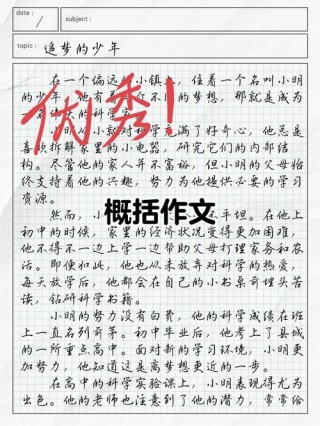 date:
subject:
topic: 追梦的少年
在一个偏远 小镇 ，住着一个名叫小明
的少年。他有 个不 的梦想，那就是成为
大的科学
小明从小就对科学充满了好奇心，他总是
喜欢拆解家里的小电器，研究它们的内部结
构。尽管他的家人并不富裕，但小明的父母始
终支持着他的兴趣，努力为他提供必要的学习
资源。
然而，小 不平坦。在他上
初中的时候，家里的经济状况变得更加困难，
他不得不一边上学一边帮助父母打理家务和农
活。即便如此，他也从未放弃对科学的热爱，
每天放学后，他都会在自己的小书桌前埋头苦
读，钻研科学书籍。
小明的努力没有白费，他的科学成绩在班
上一直名列前茅。初中毕业后，他考上了县城
的一所重点高中。面对新的学习环境，小明更
加努力，他知道这是离梦想更近的一步。
在高中的科学实验课上，小明表现得尤为
出色。他的老师也注意到了他的潜力，常常给
优秀！
概括作文